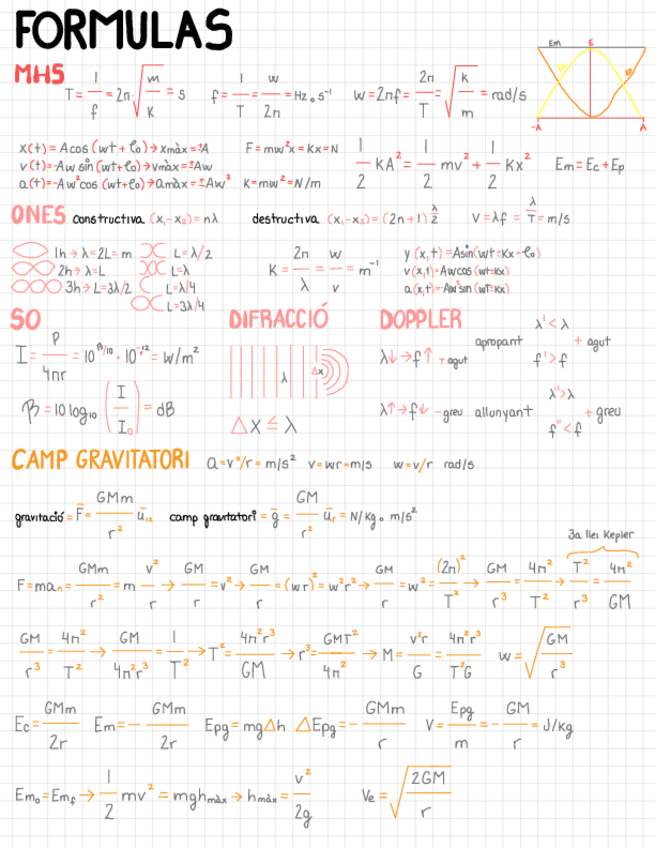 FORMULAS
MHS
T = 1/f = 2π·√(m/K) = s   f = 1/T = w/2π = Hz o s⁻¹   w = 2πf = 2π/T = √(k/m) = rad/s
Em E
-A A
x(t) = A cos (wt + φ₀) → xmàx = ±A   F = mw²x = Kx = N   1/2 kA² = 1/2 mv² + 1/2 Kx²   Em = Ec + Ep
v(t) = -Aw sin (wt + φ₀) → vmàx = ±Aw
a(t) = -Aw²cos (wt + φ₀) → amàx = ±Aw²   K = mw² = N/m
ONES constructiva (x₁-x₂) = nλ   destructiva (x₁-x₂) = (2n+1) λ/2   v = λf = λ/T = m/s
1h → λ = 2L = m   L = λ/2   K = 2π/λ = w/v = m⁻¹   y (x,t) = Asin(wt±Kx-φ₀)
2h → λ = L   L = λ   v(x,t) = Aw cos (wt±Kx)
3h → L = 3λ/2   L = λ/4   a(x,t) = -Aw²sin (wt±Kx)
L = 3λ/4
SO   DIFRACCIÓ   DOPPLER
I = P/4πr = 10^(β/10) · 10^(-12) = W/m²   λ   Δx   λ↓ → f↑ + agut   apropant   λ' < λ   f' > f   + agut
β = 10 log₁₀ (I/I₀) = dB   Δx ≤ λ   λ↑ → f↓ - greu   allunyant   λ'' > λ   f'' < f   + greu
CAMP GRAVITATORI   a = v²/r = m/s²   v = wr = m/s   w = v/r rad/s
gravitació = F = GMm/r² u₁₂   camp gravitatori = g = GM/r² uᵣ = N/kg o m/s²
3a llei Kepler
F = maₙ = GMm/r² = m v²/r → GM/r = v² → GM/r = (wr)² = w²r² → GM/r = w² = (2π)²/T² → GM/r³ = 4π²/T² → T²/r³ = 4π²/GM
GM/r³ = 4π²/T² → GM/4π²r³ = 1/T² → T² = 4π²r³/GM → r³ = GMT²/4π² → M = v²r/G = 4π²r³/T²G   w = √(GM/r³)
Ec = GMm/2r   Em = - GMm/2r   Epg = mgΔh   ΔEpg = - GMm/r   V = Epg/m = - GM/r = J/kg
Em₀ = Emf → 1/2 mv² = mghmàx → hmàx = v²/2g   Ve = √(2GM/r)